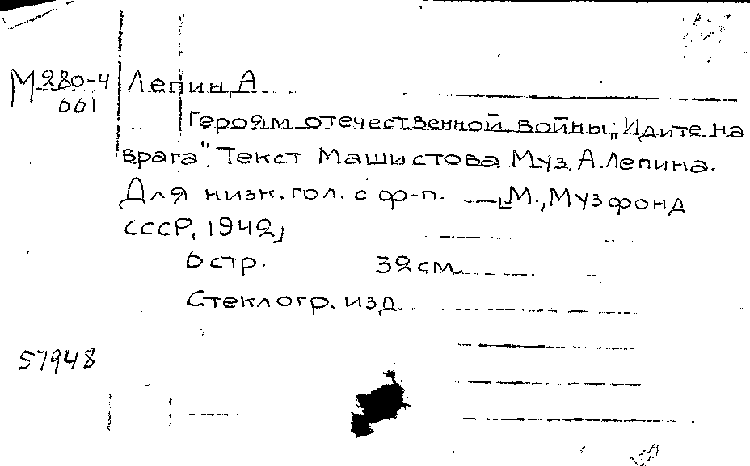 М 280-4
001
Лепин, А
Героям отечественной войны „Идите на
врага". Текст Машистова Муз. А. Лепина.
Для низк. гол. с ф-п. — М., Музфонд
СССР, 1942,
6 стр. 32 см.
Стеклогр. изд.
57948